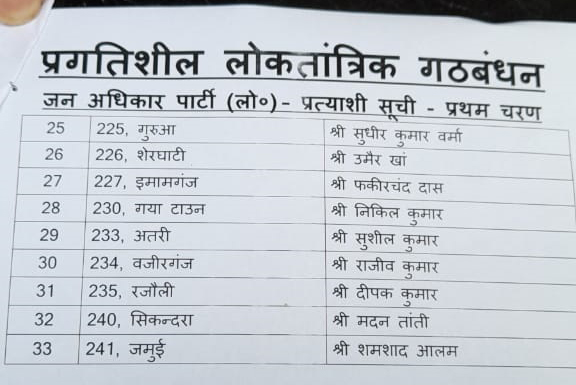 प्रगतिशील लोकतांत्रिक गठबंधन
जन अधिकार पार्टी (लो०)- प्रत्याशी सूची - प्रथम चरण
25 225, गुरुआ श्री सुधीर कुमार वर्मा
26 226, शेरघाटी श्री उमैर खां
27 227, इमामगंज श्री फकीरचंद दास
28 230, गया टाउन श्री निकिल कुमार
29 233, अतरी श्री सुशील कुमार
30 234, वजीरगंज श्री राजीव कुमार
31 235, रजौली श्री दीपक कुमार
32 240, सिकन्दरा श्री मदन तांती
33 241, जमुई श्री शमशाद आलम